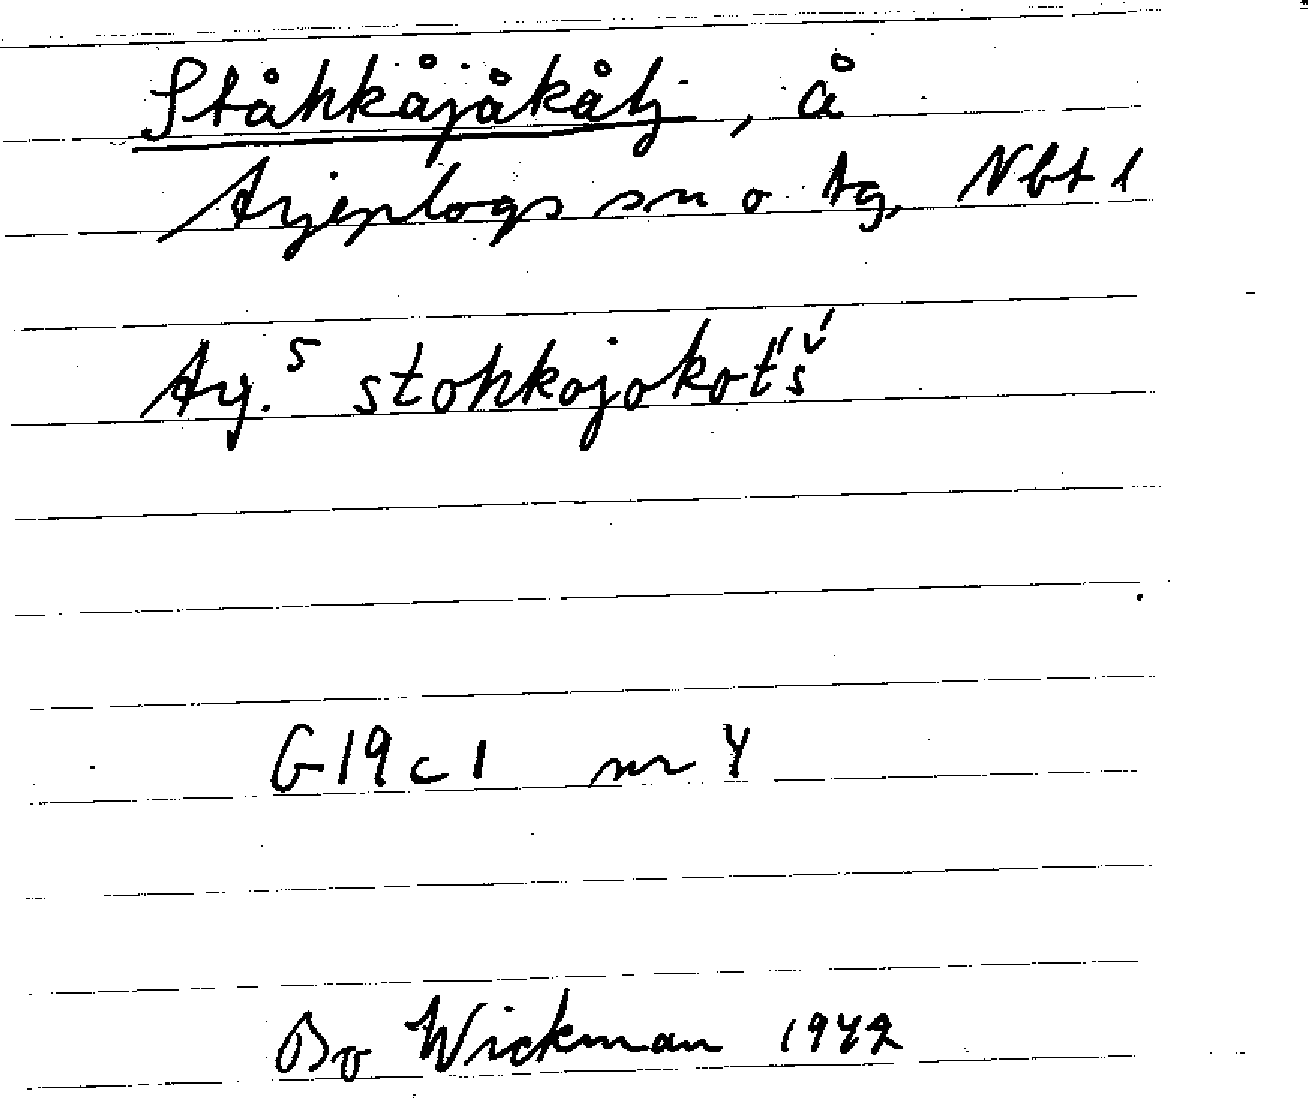 Ståhkåjåkåtj, å
Arjeplogs sn o tg, Nbt l
Arj.⁵ stohkojokot́'š́
G19c1 nr 4
Bo Wickman 1942